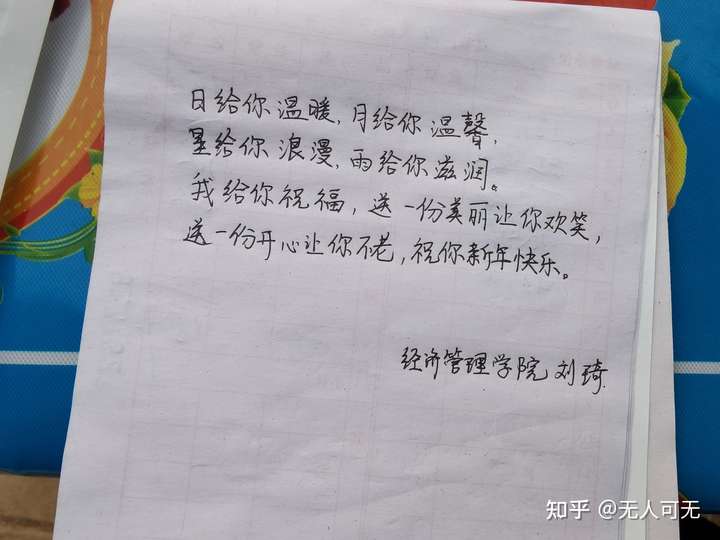 日给你温暖，月给你温馨，
星给你浪漫，雨给你滋润。
我给你祝福，送一份美丽让你欢笑，
送一份开心让你不老，祝你新年快乐。
经济管理学院 刘琦
知乎 @无人可无